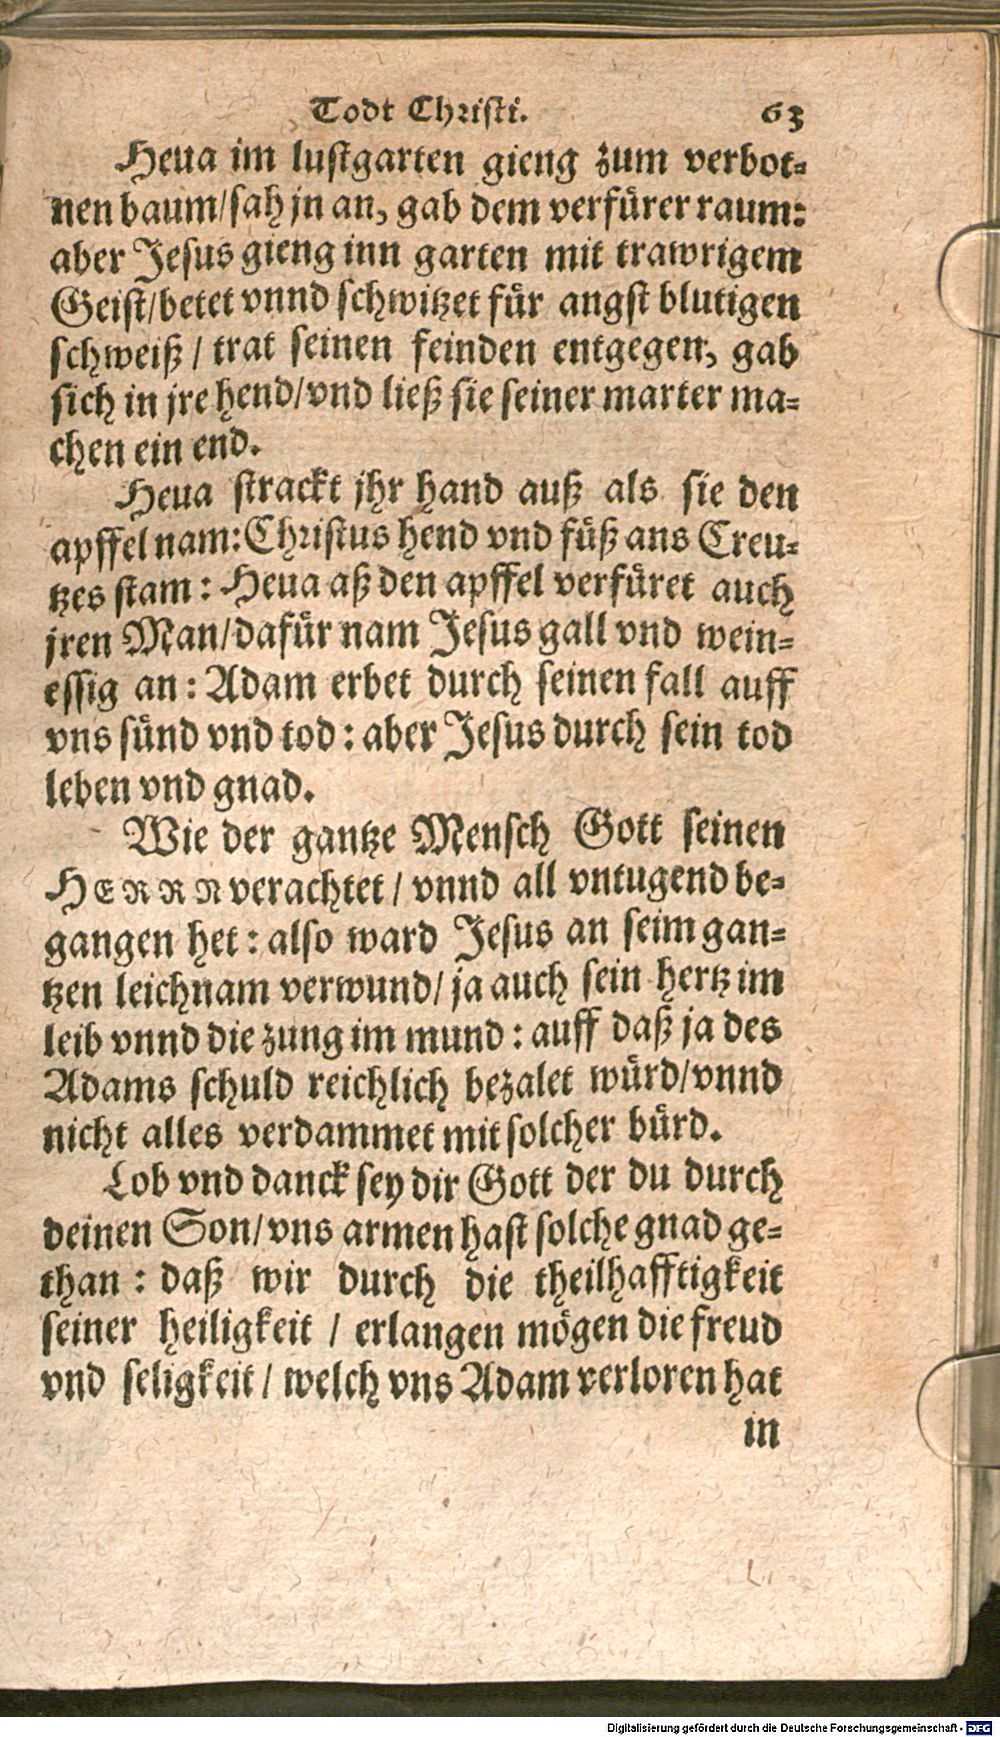 Todt Christi. 63
Heua im lustgarten gieng zum verbot-
nen baum/sah jn an, gab dem verfürer raum:
aber Jesus gieng inn garten mit trawrigem
Geist/betet vnnd schwitzet für angst blutigen
schweiß / trat seinen feinden entgegen, gab
sich in jre hend/vnd ließ sie seiner marter ma-
chen ein end.
Heua strackt jhr hand auß als sie den
apffel nam: Christus hend vnd füß ans Creu-
tzes stam: Heua aß den apffel verfüret auch
jren Man/dafür nam Jesus gall vnd wein-
essig an: Adam erbet durch seinen fall auff
vns sünd vnd tod: aber Jesus durch sein tod
leben vnd gnad.
Wie der gantze Mensch Gott seinen
HERRN verachtet / vnnd all vntugend be-
gangen het: also ward Jesus an seim gan-
tzen leichnam verwund/ ja auch sein hertz im
leib vnnd die zung im mund: auff daß ja des
Adams schuld reichlich bezalet würd/vnnd
nicht alles verdammet mit solcher bürd.
Lob vnd danck sey dir Gott der du durch
deinen Son/vns armen hast solche gnad ge-
than: daß wir durch die theilhafftigkeit
seiner heiligkeit / erlangen mögen die freud
vnd seligkeit / welch vns Adam verloren hat
in
Digitalisierung gefördert durch die Deutsche Forschungsgemeinschaft - DFG